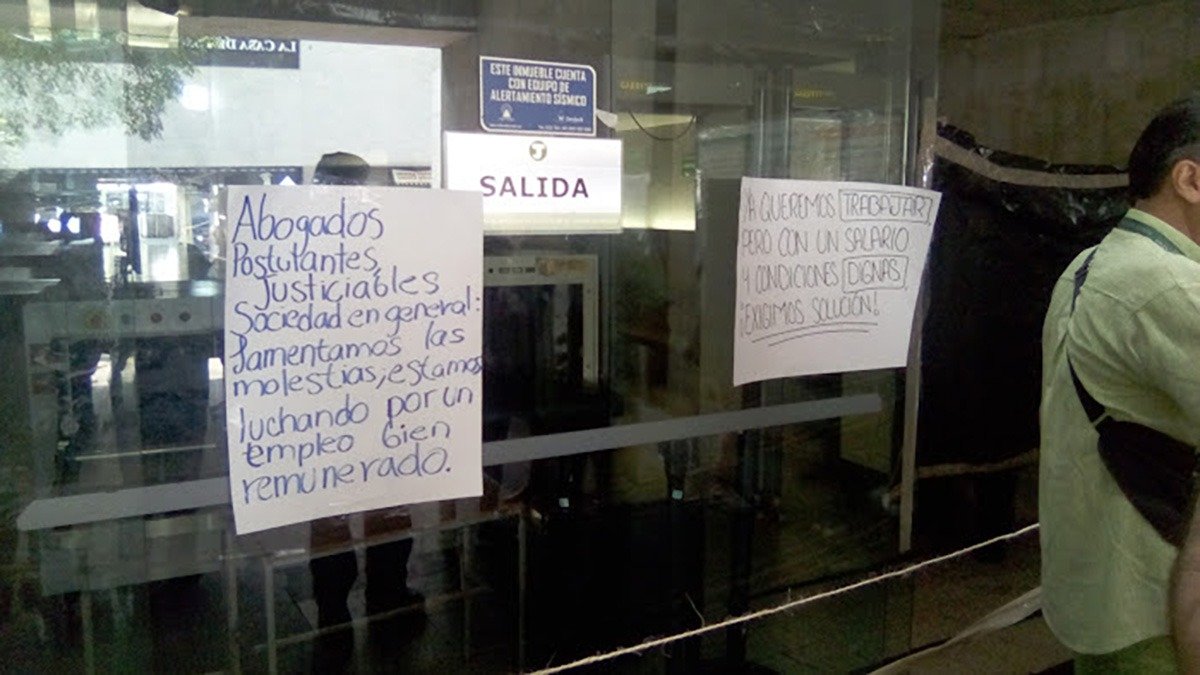 LA CASA DE
ESTE INMUEBLE CUENTA
CON EQUIPO DE
ALERTAMIENTO SÍSMICO
SALIDA
Abogados
Postulantes,
Justiciables
Sociedad en general:
lamentamos las
molestias, estamos
luchando por un
empleo bien
remunerado.
¡YA QUEREMOS TRABAJAR,
PERO CON UN SALARIO
Y CONDICIONES DIGNAS,
¡EXIGIMOS SOLUCIÓN!